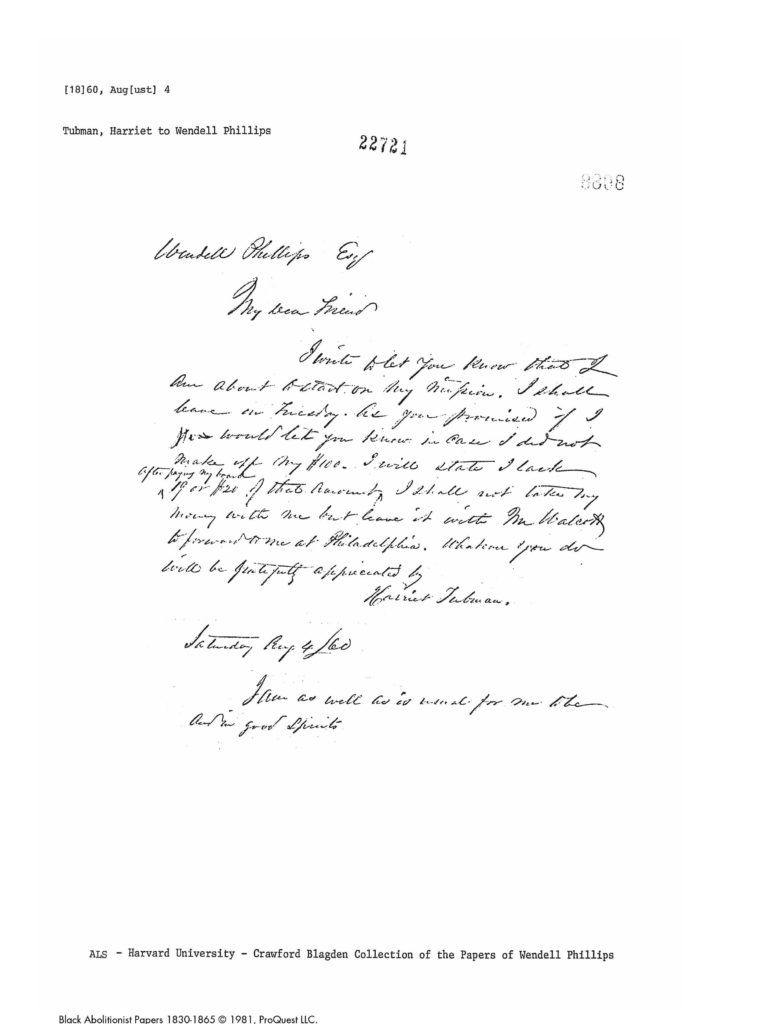 [18]60, Aug[ust] 4
Tubman, Harriet to Wendell Phillips
22721
8808
Wendell Phillips Esq
My Dear Friend
I write to let you know that I
Am about to start on My Mission. I shall
leave on Tuesday. As you promised if I
would let you know in Case I did not
Make off My $100. I will state I lack
After paying my board
19 or $20 of that Amount, I shall not take my
money with me but leave it with Mr Walcott
to forward to me at Philadelphia. Whatever you do
will be gratefully appreciated by
Harriet Tubman.
Saturday Aug 4/60
I am as well as is usual for me to be
And in good Spirits
ALS - Harvard University - Crawford Blagden Collection of the Papers of Wendell Phillips
Black Abolitionist Papers 1830-1865 © 1981, ProQuest LLC.